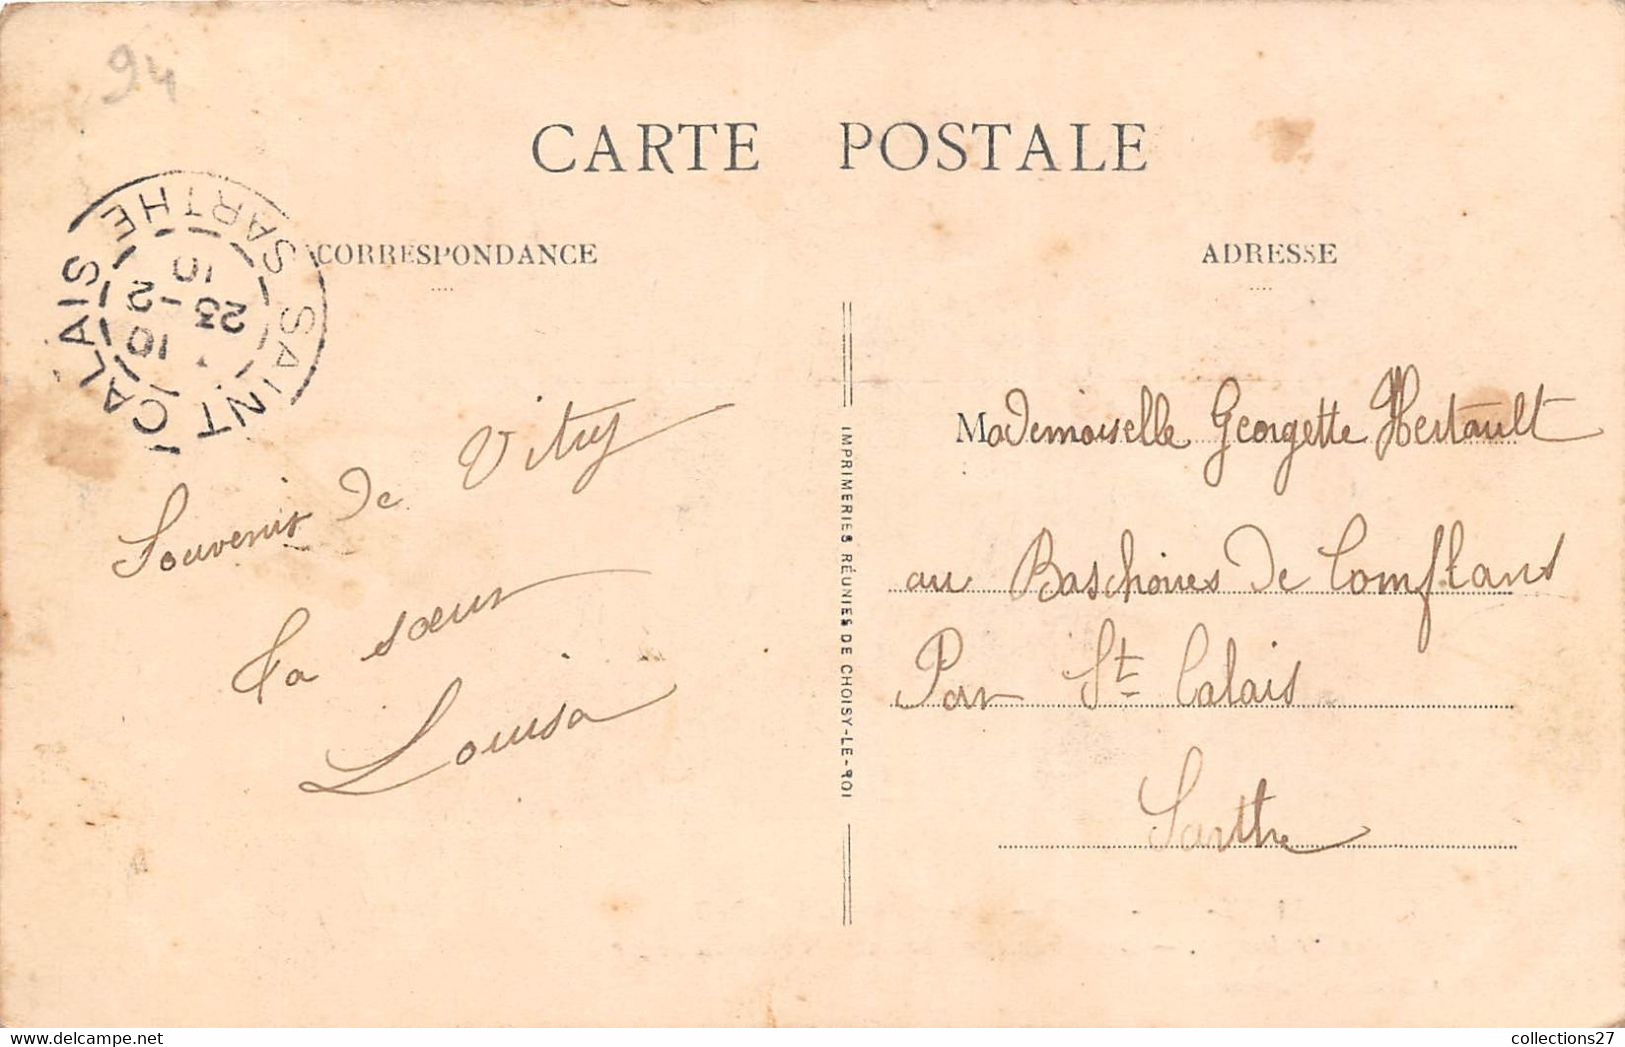 94
CARTE POSTALE
SAINT CALAIS SARTHE
10
23 - 2
10
CORRESPONDANCE
ADRESSE
Souvenir de Vitry
Ta sœur
Louisa
IMPRIMERIES RÉUNIES DE CHOISY-LE-ROI
Mademoiselle Georgette Hertault
au Baschoires de Comflans
Par St Calais
Sarthe
collections27